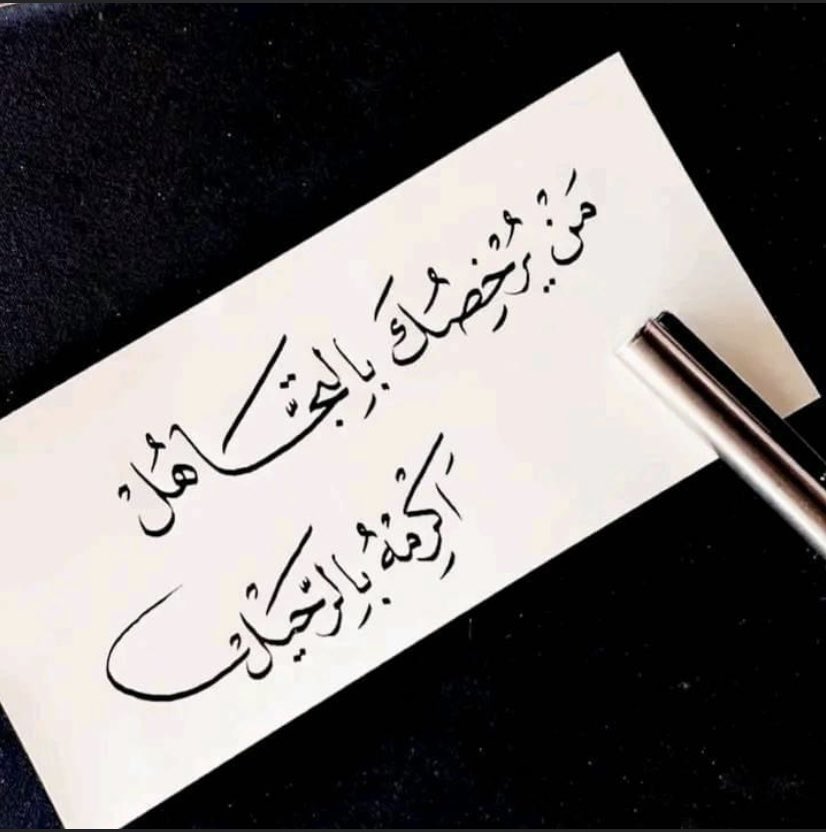 مَنْ يُرْخِصُكَ بِالتَّجَاهُلْ
اَكْرِمْهُ بِالرَّحِيْلْ